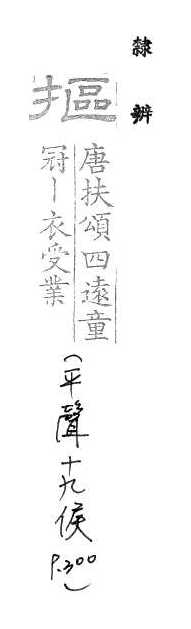 隸辨
摳
唐扶頌四遠童
冠丨衣受業
(平聲十九侯 P.300)